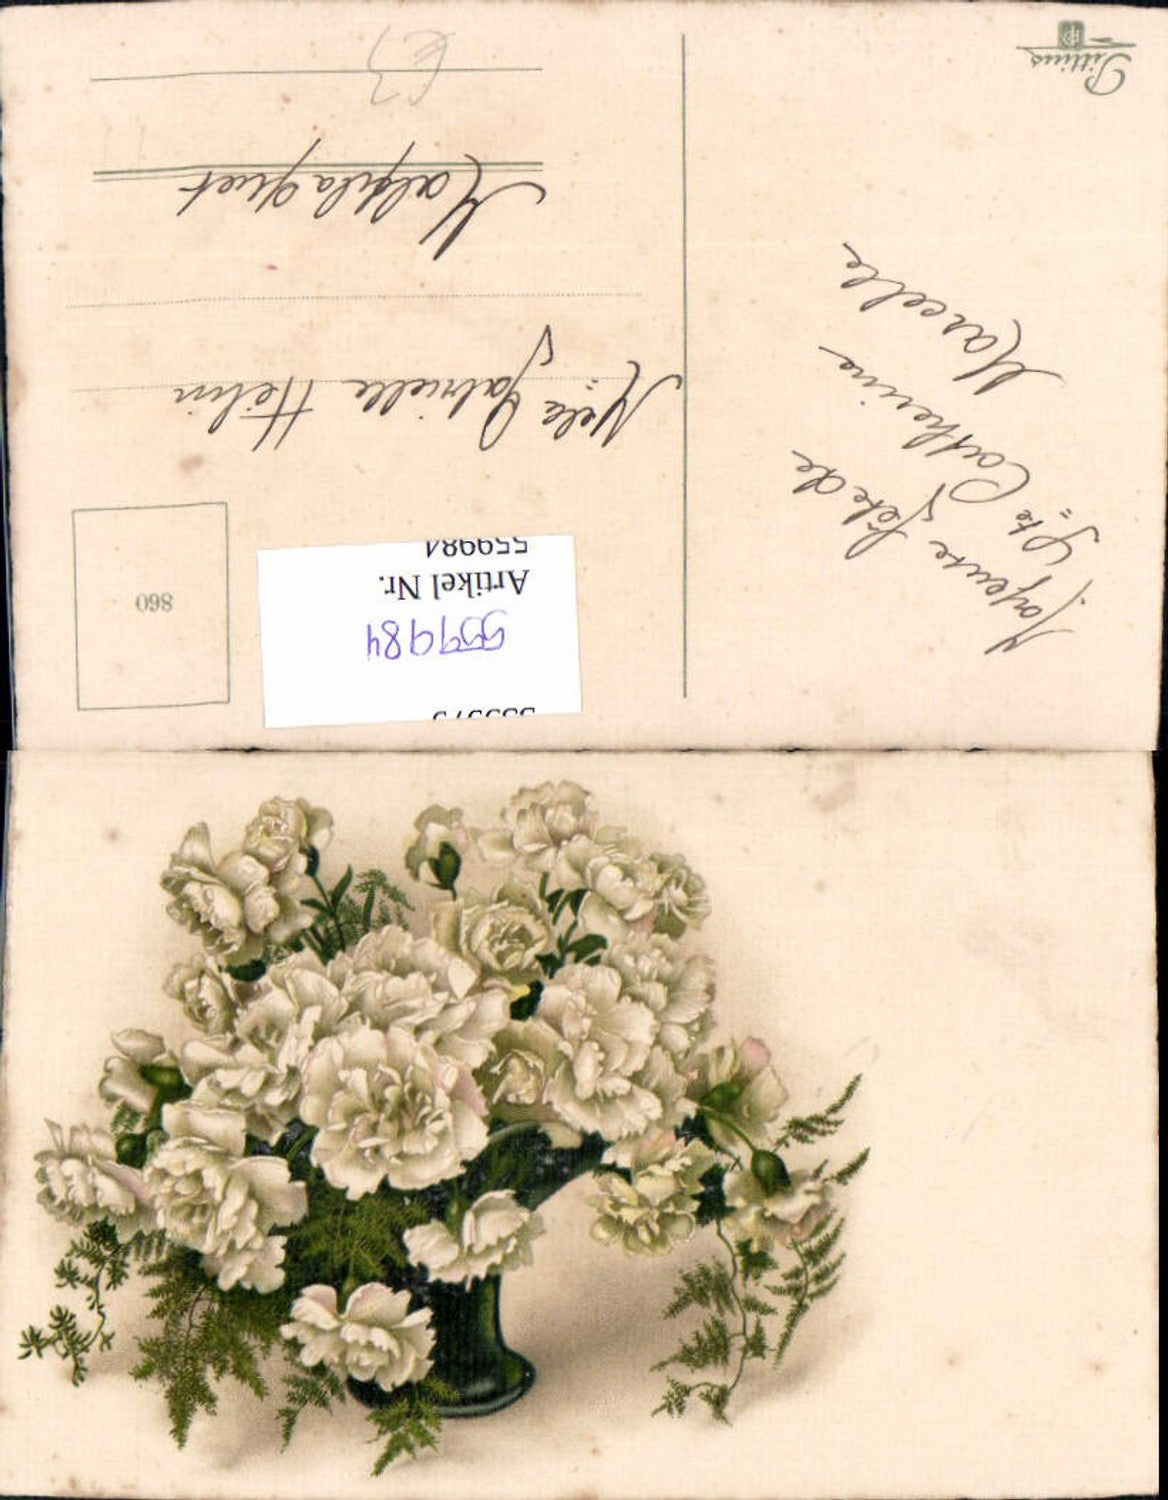 Joyeuse fête de
Ste Catherine
Marcelle
Pittius
860
Melle Gabrielle Hélin
Malplaquet
559984
Artikel Nr.
559984